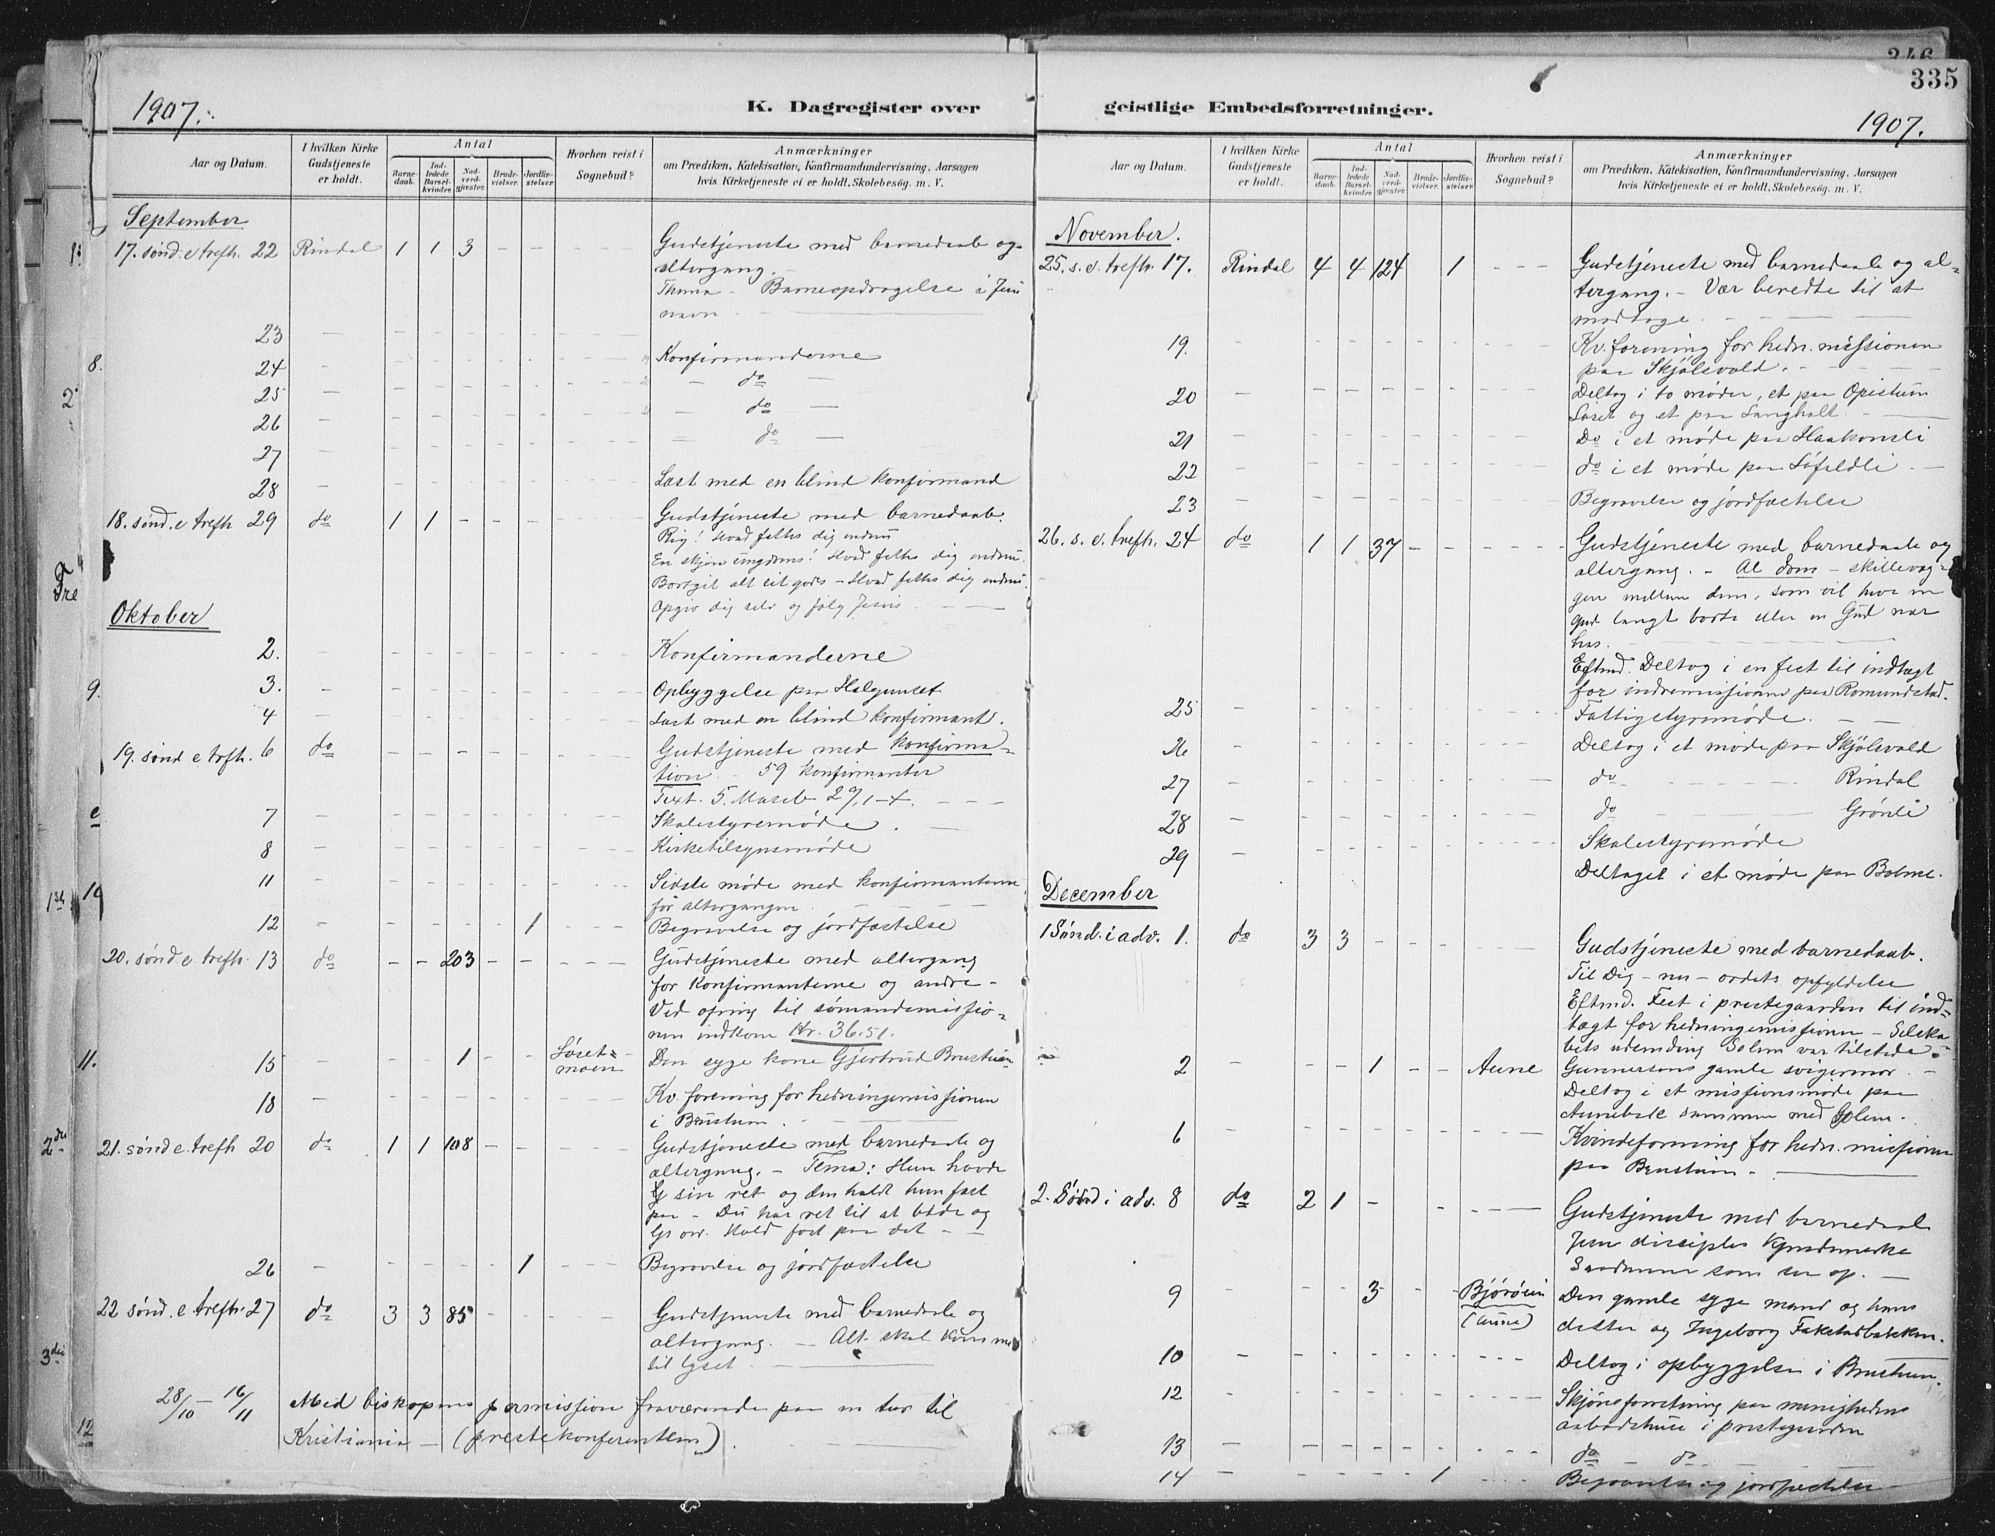 346
335
1907.
K. Dagregister over
Aar og Datum.
I hvilken Kirke Gudstjeneste er holdt.
Antal
Barnedaab.
Indledede Barselkvinder.
Nadverdgjester.
Brudevielser.
Jordfæstelser.
Hvorhen reist i Sognebud?
Anmærkninger
om Prædiken, Katekisation, Konfirmandundervisning, Aarsagen
hvis Kirketjeneste ei er holdt, Skolebesøg. m. V.
September
17. sønd. e. trefh. 22 Rindal 1 1 3 - - - Gudstjeneste med barnedaab og
altergang. -
Thema - Barneopdragelse i Jesu
navn
23
24 Konfirmanderne
25 - do -
26 - do -
27 - do -
28 Læst med en blind konfirmand
18. sønd. e trefh 29 do 1 1 - - - Gudstjeneste med barnedaab.
Rig! Hvad fattes dig endnu
En skjøn ungdoms! Hvad fattes dig endnu.
Bortgit alt eit gods - Hvad fattes dig endnu.
Opgiv dig selv og følg Jesus.
Oktober
2. Konfirmanderne
3. Opbyggelse paa Halgunset
4 Læst med en blind konfirmant.
19. sønd e trfh. 6 do Gudstjeneste med konfirma-
tion. - 59 konfirmanter
Text. 5. Moseb 29, 1-4.
7 Skolestyremøde.
8 Kirketilsynsmøde
11 Sidste møde med konfirmanterne
før altergangen.
12 1 Begravelse og jordfæstelse
20. sønd e trefh. 13 do - - 203 - - Gudstjeneste med altergang
for konfirmanterne og andre -
Ved ofring til sømandsmissio-
nen indkom Kr. 36.51.
15 1 - - Løset-
moen Den syge kone Gjertrud
18 Kv. forening for hedningemissionen
i Brustum.
21. sønd e trefh 20 do 1 1 108 - - Gudstjeneste med barnedaab og
altergang. - Tema: Hun havde
sin ret og den holdt hun fast
paa - Du har ret til at bede og
Hold fast paa det -
26 1 Begravelse og jordfæstelse
22 sønd. e trefh. 27 do 3 3 85 - - Gudstjeneste med barnedaab og
altergang. - Alt skal komme
til lyset.
28/10 - 16/11 Med biskopens permission fraværende paa en tur til
Kristiania - (prestekonferentsen).
geistlige Embedsforretninger.
1907.
Aar og Datum.
I hvilken Kirke Gudstjeneste er holdt.
Antal
Barnedaab.
Indledede Barselkvinder.
Nadverdgjester.
Brudevielser.
Jordfæstelser.
Hvorhen reist i Sognebud?
Anmærkninger
om Prædiken, Katekisation, Konfirmandundervisning, Aarsagen
hvis Kirketjeneste ei er holdt. Skolebesøg. m. V.
November.
25. s. e. trefh. 17. Rindal 4 4 124 1 - - - Gudstjeneste med barnedaab og al-
tergang. - Vær beredte til at
modtage.
19. Kv. forening for hedn. missionen
paa Skjølsvold.
20 Deltog i to møder, et paa
Løset og et paa Langholt.
21 Do i et møde paa Haakonsli
22 do i et møde paa Løfaldli
23 Begravelse og jordfæstelse
26. s. e. trefh. 24 do 1 1 37 - - Gudstjeneste med barnedaab og
altergang. - Al dom - skillevæg-
gen mellem dem, som vil have en
Gud langt borte eller en Gud nær
hos.
Eftmd. Deltog i en fest til indtægt
for indremissionen paa Romundstad.
25 Fattigstyremøde.
26 Deltog i et møde paa Skjølsvold
27 do Rindal
28 do Grønli
29 Skolestyremøde
Deltaget i et møde paa Bolme.
December
1 Sønd. i adv. 1. do 3 3 - - - Gudstjeneste med barnedaab.
Til Dig - nu - ordets opfyldelse
Eftmd. Fest i prestegaarden til ind-
tægt for hedningemissionen - Selska-
bets udsending Solem var tilstede.
2 1 - - Aune Gunnersons gamle svigermor.
Deltog i et missionsmøde paa
sammen med Solem.
6 Kvindeforening for hedn. missionen
paa Brustum.
2. Sønd i adv. 8 do 2 1 - Gudstjeneste med barnedaab
Jesu disciples
som ser op. -
9 3 (Aune) Den gamle syge mand og hans
datter og Ingeborg
10 Deltog i opbyggelse i Brustum.
12 Skjønsforretning paa menighedens
arbeidshuse i prestegaarden
13 do do
14 1 Begravelse og jordfæstelse